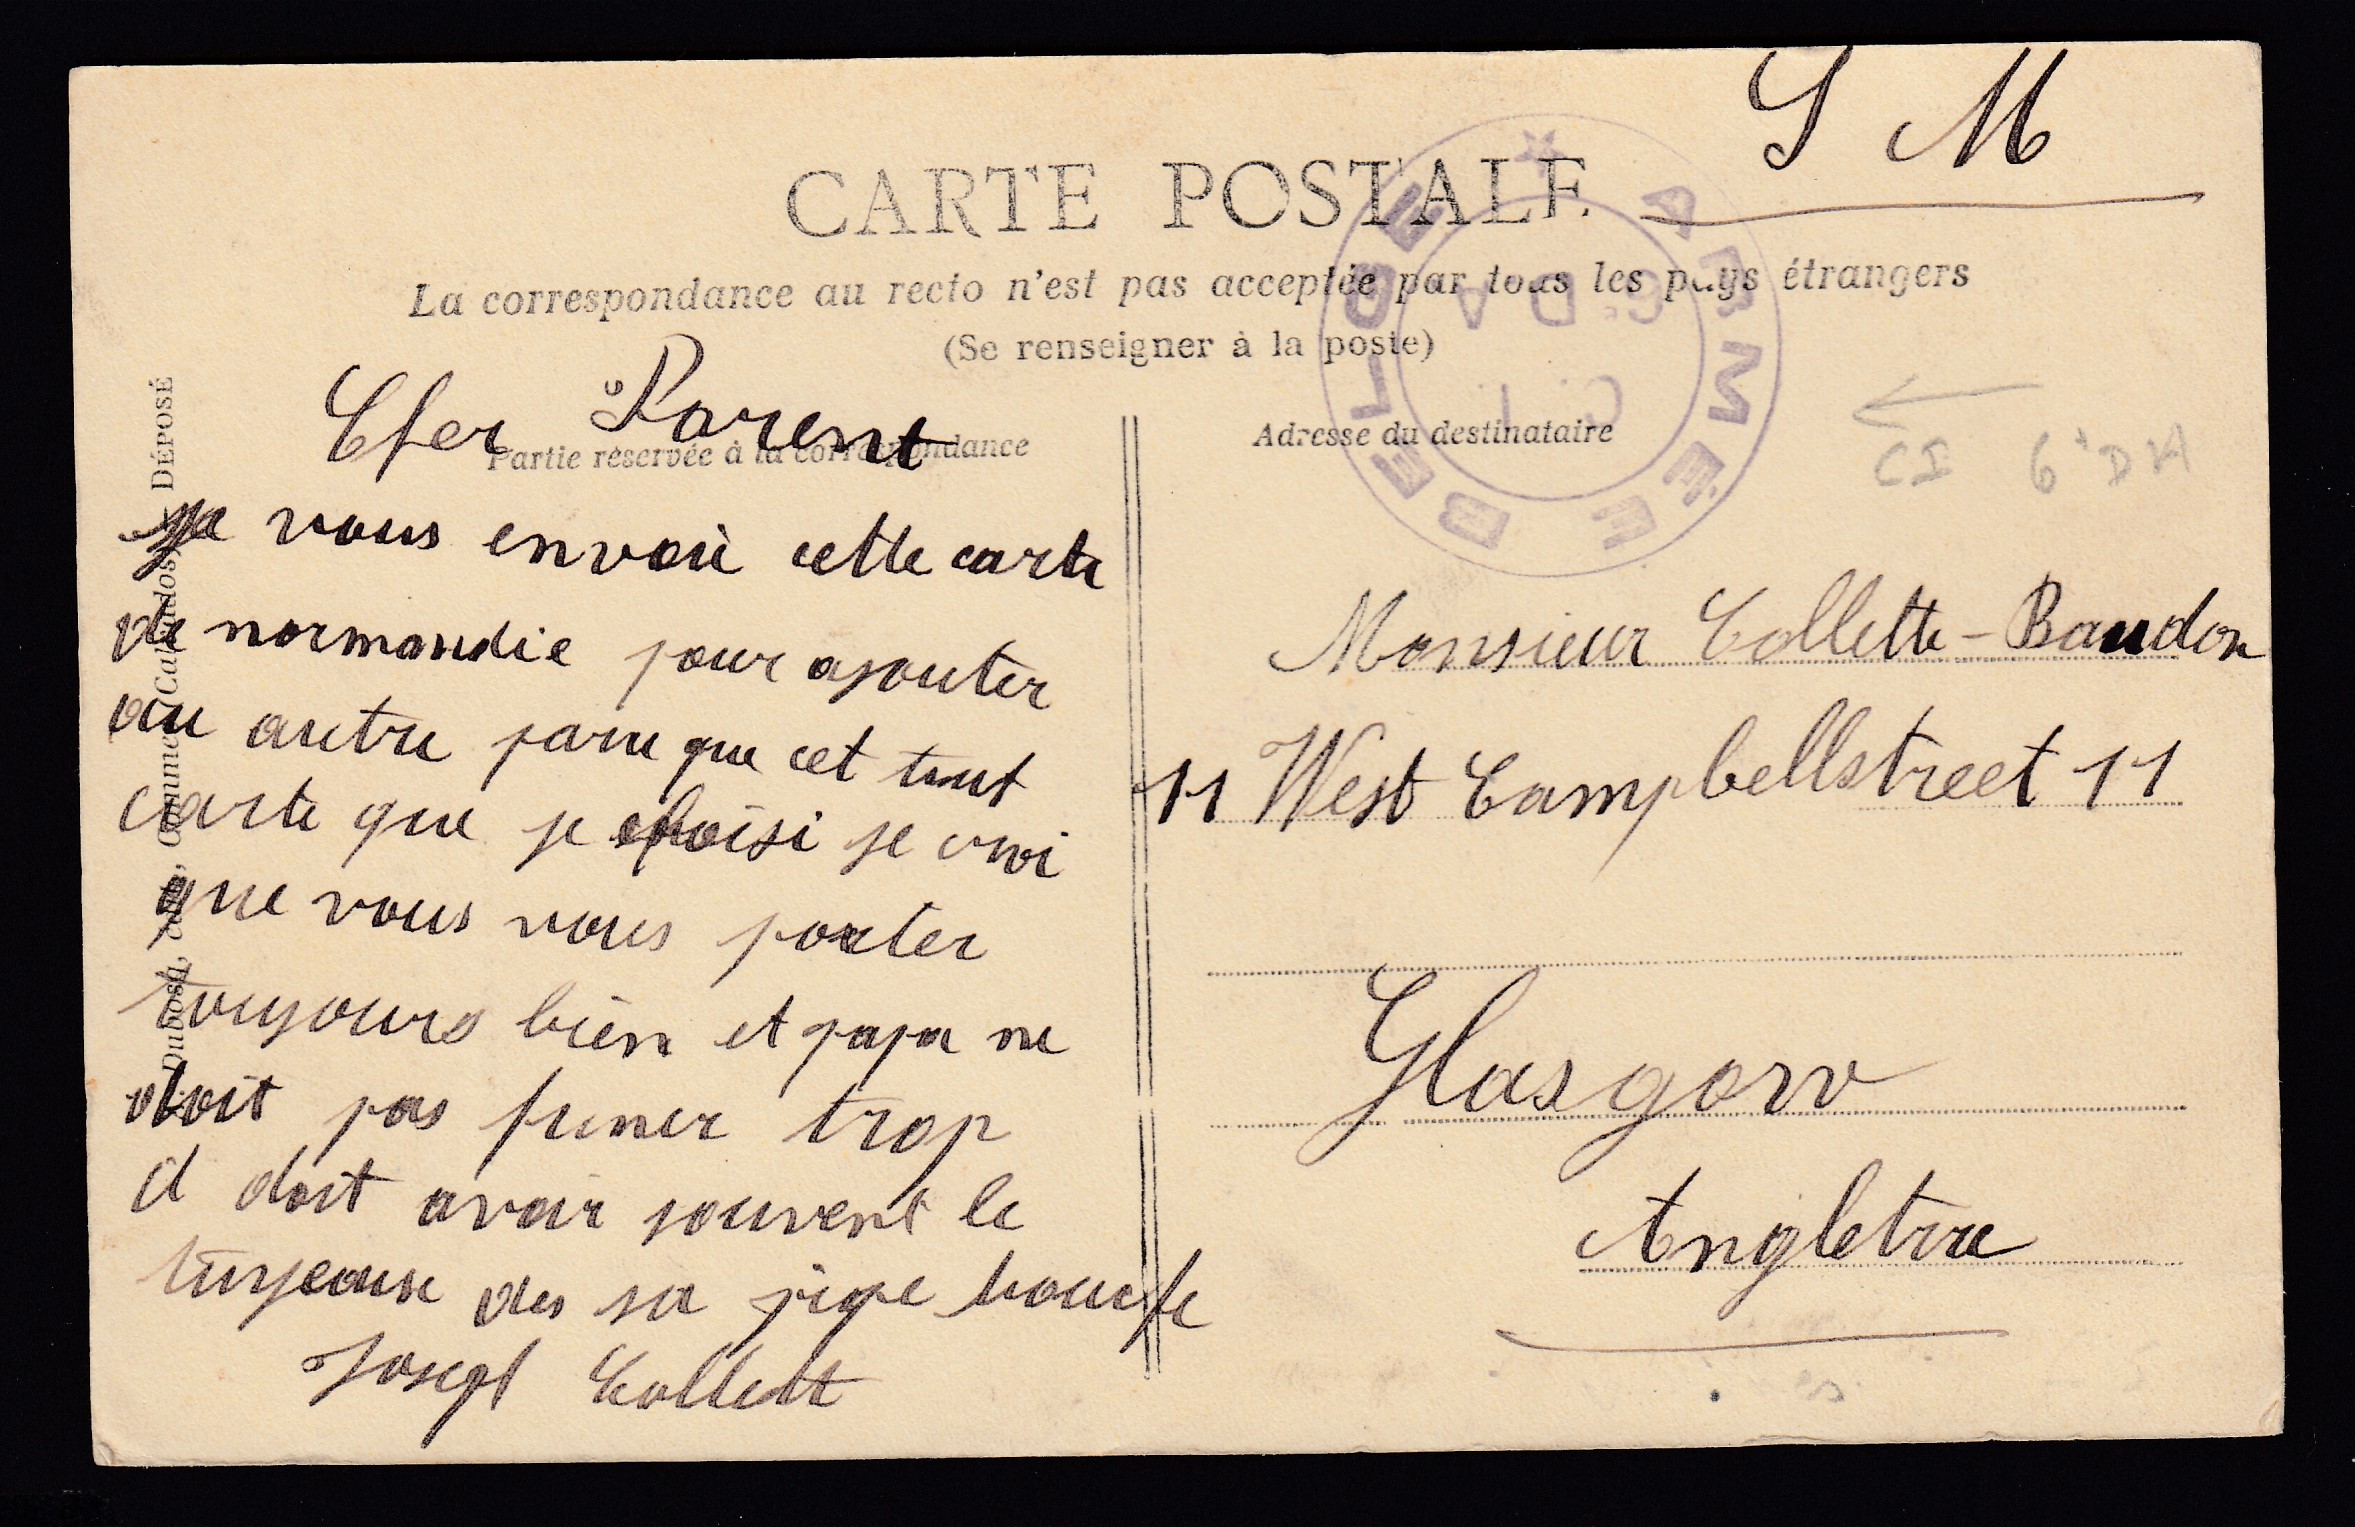 S M
CARTE POSTALE
La correspondance au recto n'est pas acceptée par tous les pays étrangers
(Se renseigner à la poste)
ARMÉE BELGE
6e D A
C. I.
CI 6e DA
Partie réservée à la correspondance
Adresse du destinataire
Cher Parent
je vous envoie cette carte
de normandie pour ajouter
au autre parce que cet tout
carte que je choisi je croi
que vous vous porter
toujours bien et papa ne
doit pas fumer trop
il doit avoir souvent le
des sa pipe bouche
Joseph Collett
Monsieur Collette-Baudon
11 West Campbellstreet 11
Glasgow
Angleterre
Dubosq, édit., Commes (Calvados) DÉPOSÉ